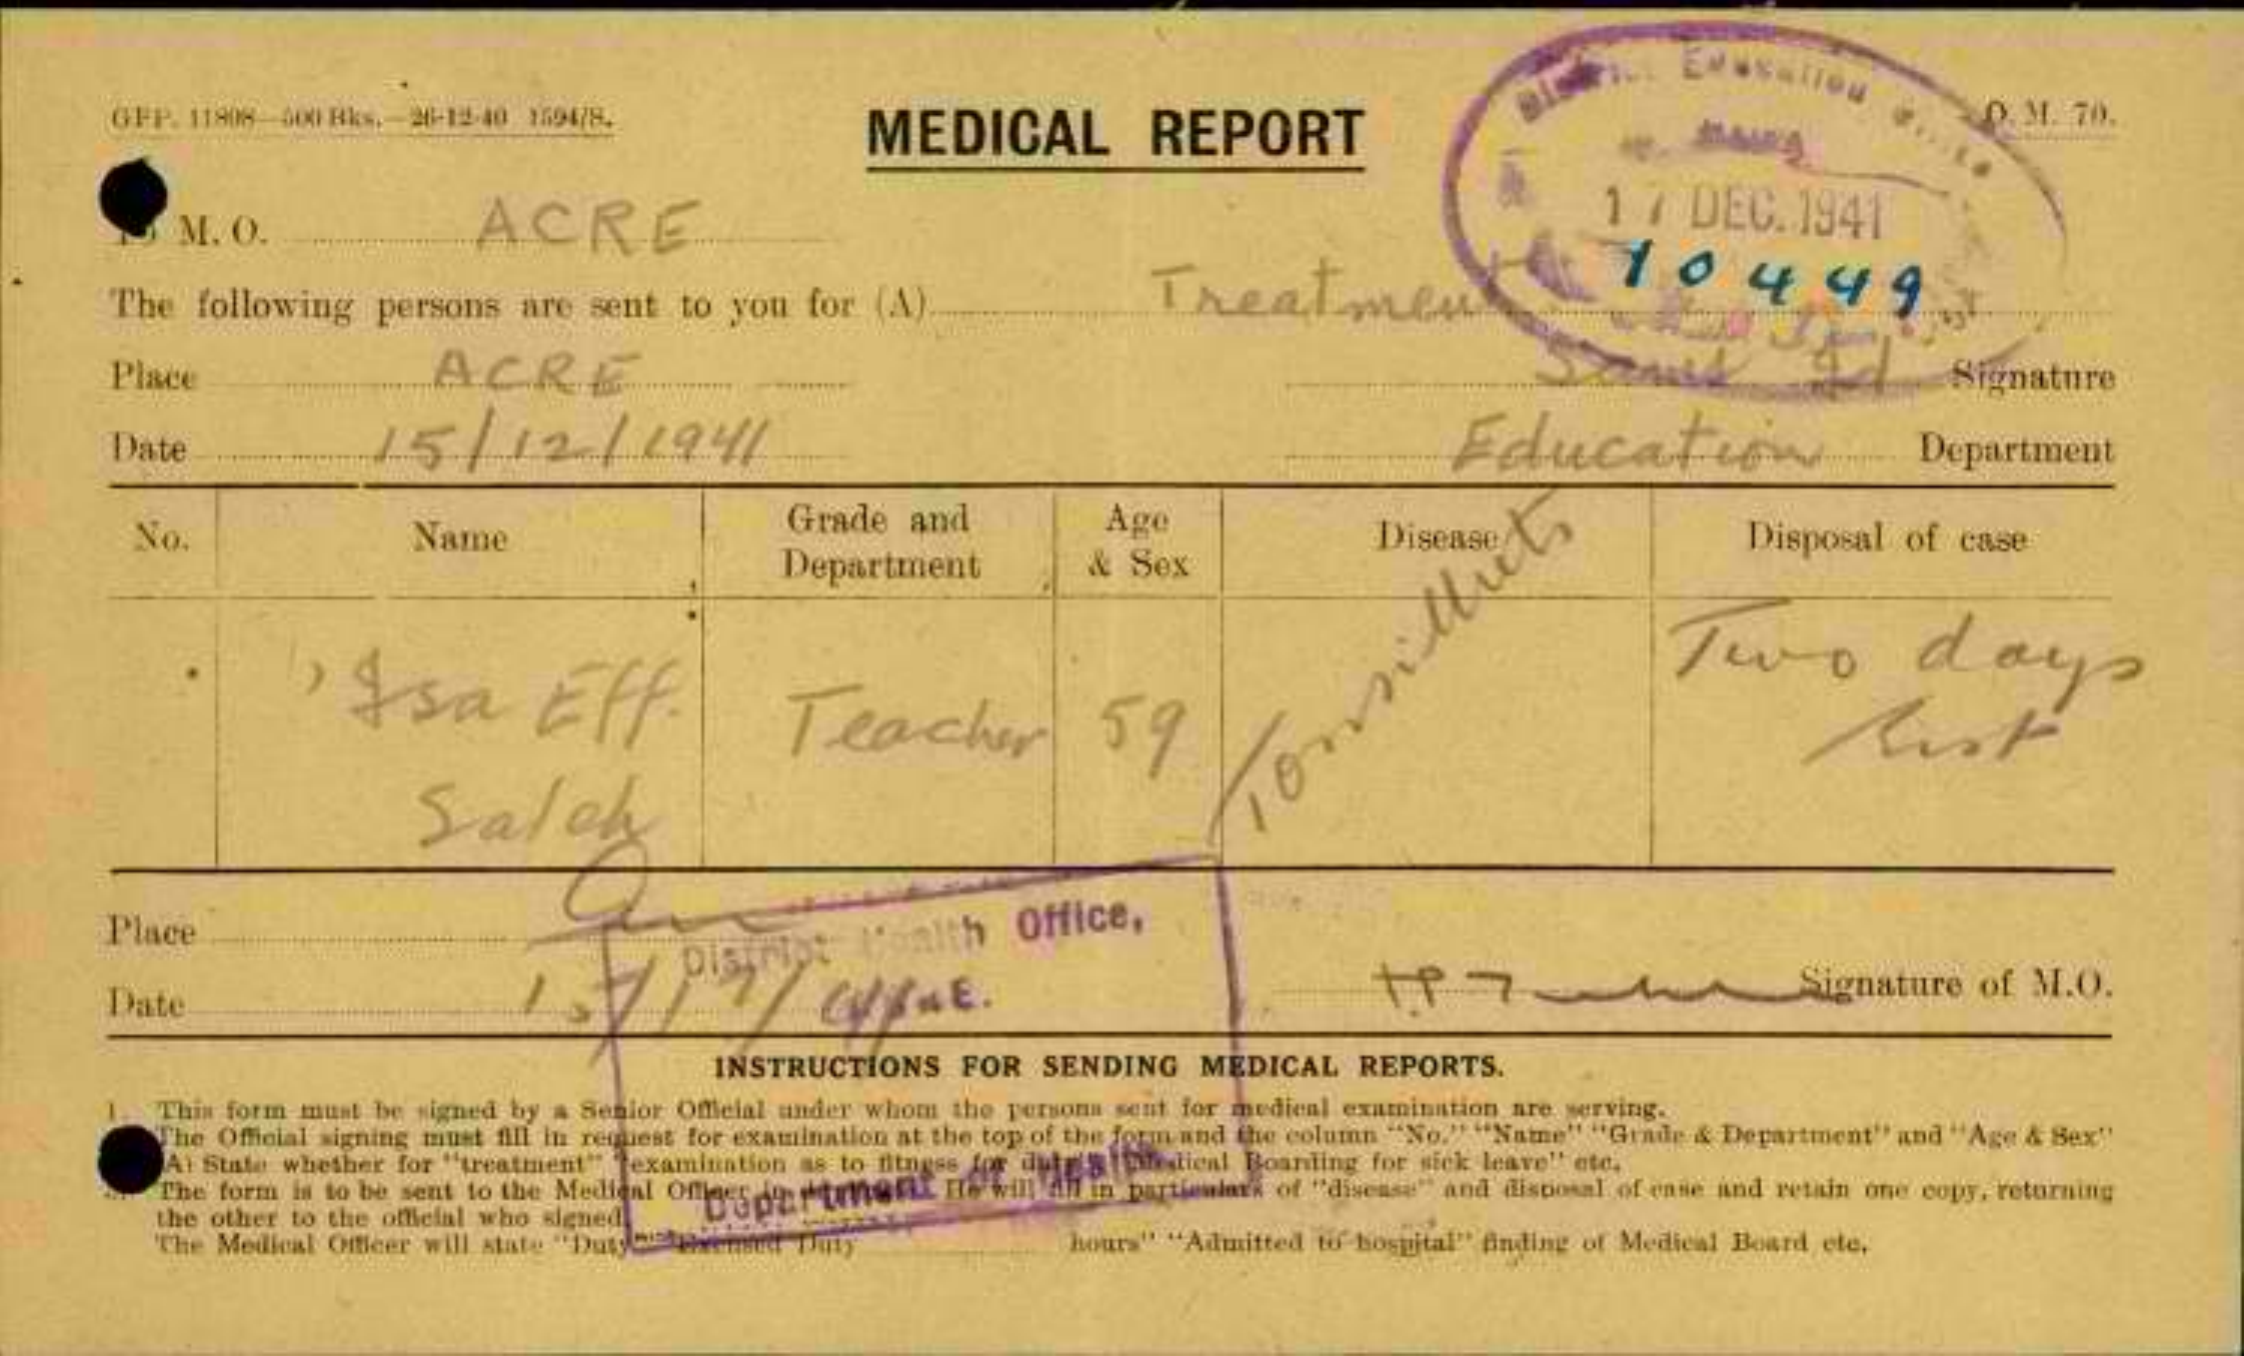 GPP. 11808—500 Bks.—26-12-40 1594/S.
MEDICAL REPORT
D. M. 70.
District Education Office
17 DEC. 1941
10449
To M. O. ACRE
The following persons are sent to you for (A) Treatment
Place ACRE
Signature
Date 15/12/1941
Education Department
No. Name Grade and Department Age & Sex Disease Disposal of case
Isa Eff. Saleh Teacher 59 Tonsillitis Two days rest
Place
District Health Office,
Date
Signature of M.O.
INSTRUCTIONS FOR SENDING MEDICAL REPORTS.
1. This form must be signed by a Senior Official under whom the persons sent for medical examination are serving.
The Official signing must fill in request for examination at the top of the form and the column "No." "Name" "Grade & Department" and "Age & Sex"
(A) State whether for "treatment" "examination as to fitness for duty" "Medical Boarding for sick leave" etc.
The form is to be sent to the Medical Officer in He will fill in particulars of "disease" and disposal of case and retain one copy, returning
the other to the official who signed.
The Medical Officer will state "Duty" "Excused Duty hours" "Admitted to hospital" finding of Medical Board etc.
Department of Health